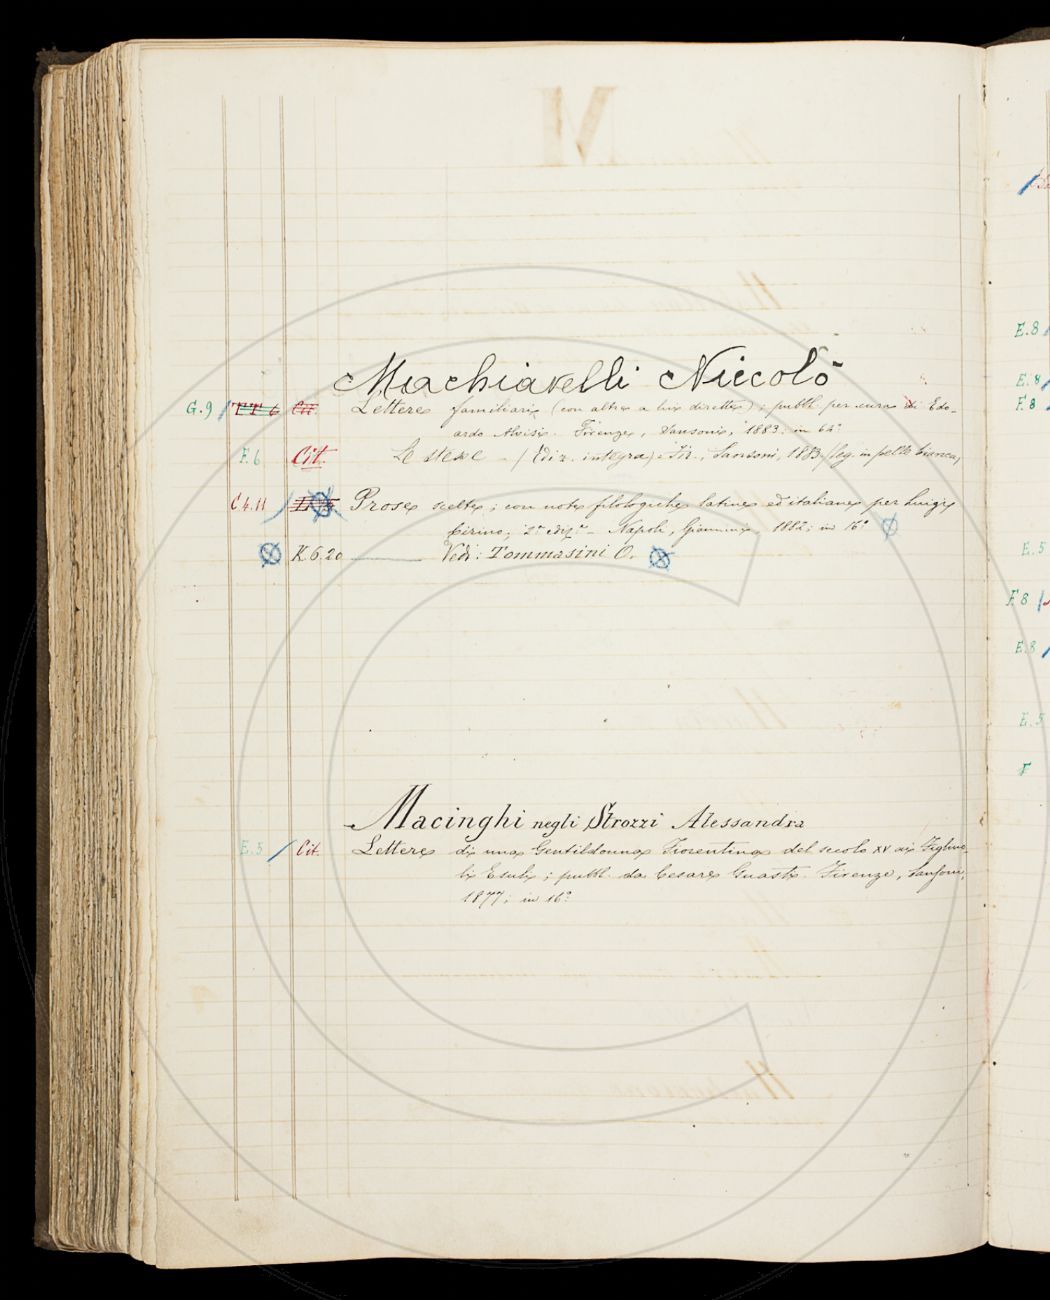 Machiavelli Niccolò
G.9 Cit. Lettere familiari (con altre a lui dirette); pubbl. per cura di Edo-
ardo Alvisi. Firenze, Sansoni, 1883; in 64°
F.6 Cit. Le stesse – (Ediz. integra); Fir., Sansoni, 1883 (leg. in pelle bianca)
C4.11 Prose scelte; con note filologiche latine ed italiane per Luigi
Cirino; 2ª ediz.ne – Napoli, 1882; in 16°
K.6.20 Vedi: Tommasini O.
Macinghi negli Strozzi Alessandra
E.5 Cit. Lettere di una Gentildonna Fiorentina del secolo XV ai Figliuo-
li Esuli; pubbl. da Cesare Guasti. Firenze, Sansoni,
1877; in 16°
E.8
E.8
F.8
E.5
F.8
E.8
E.5
F